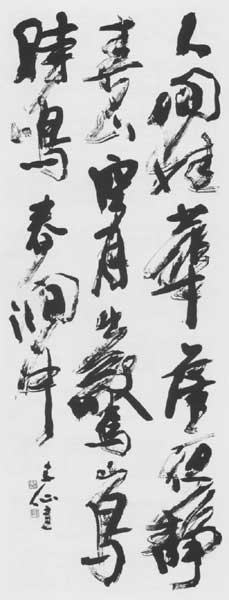 人間桂華落夜靜
春山空月出驚山鳥
時鳴春澗中